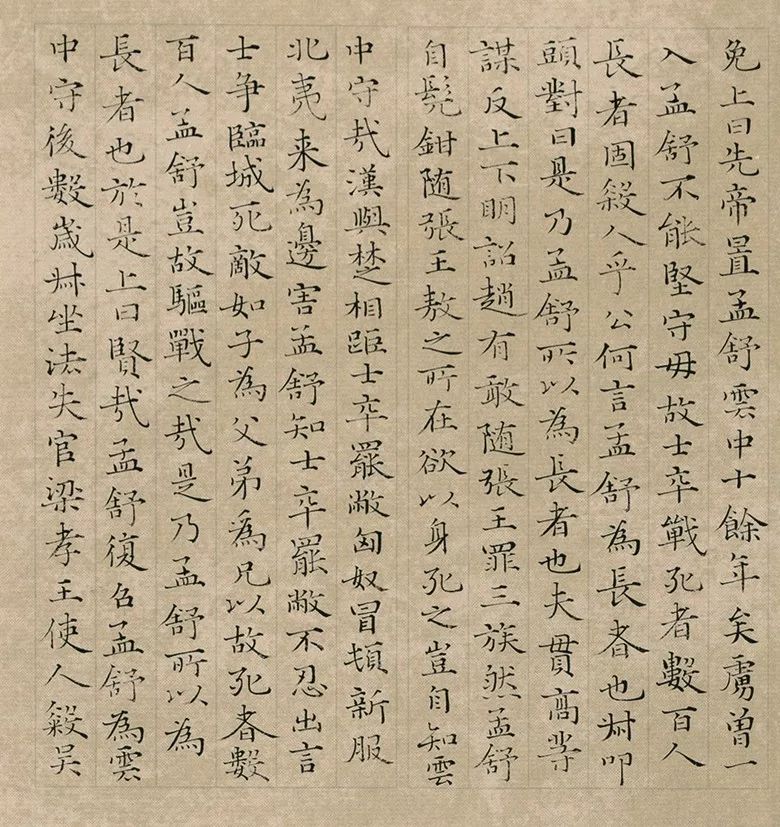 免上曰先帝置孟舒雲中十餘年矣虜曽一
入孟舒不能堅守毋故士卒戰死者數百人
長者固殺人乎公何言孟舒為長者也叔叩
頭對曰是乃孟舒所以為長者也夫貫高等
謀反上下明詔趙有敢随張王罪三族然孟舒
自髡鉗随張王敖之所在欲以身死之豈自知雲
中守㦲漢與楚相距士卒罷敝匈奴冒頓新服
北夷来為邊害孟舒知士卒罷敝不忍出言
士争臨城死敵如子為父弟為兄以故死者數
百人孟舒豈故驅戰之㦲是乃孟舒所以為
長者也於是上曰賢㦲孟舒復召孟舒為雲
中守後數歲叔坐法失官梁孝王使人殺吴